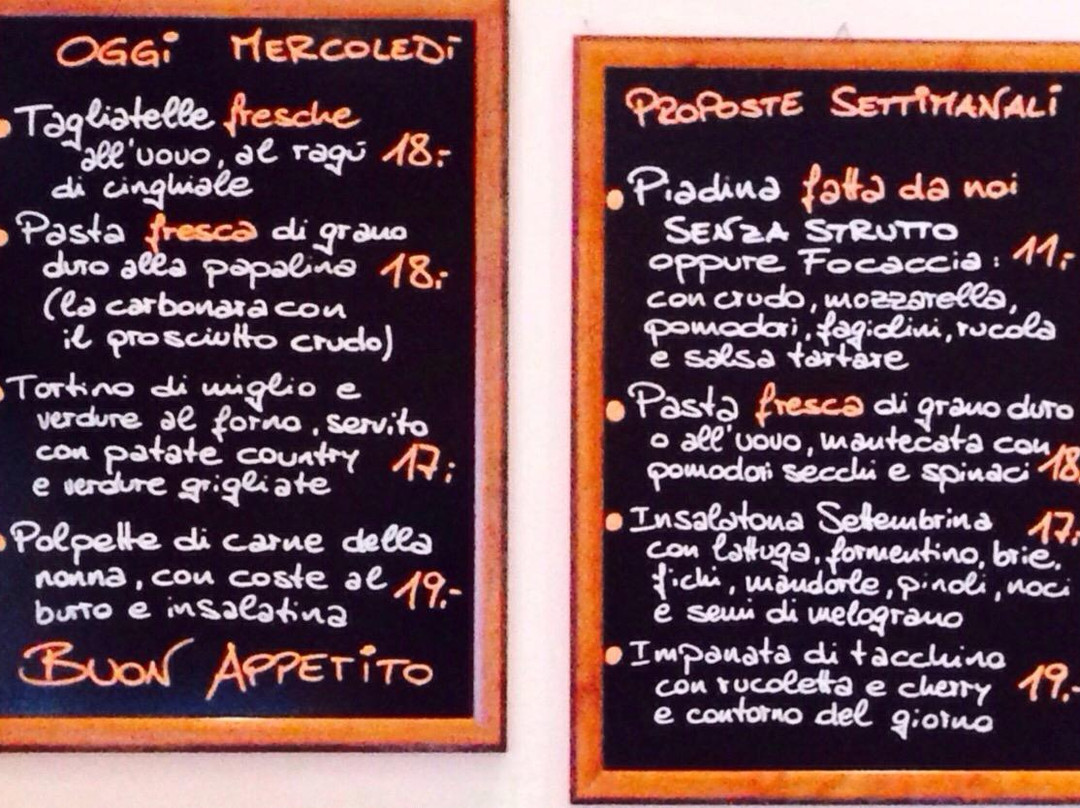 OGGi MERCOLEDì
Tagliatelle fresche
all'uovo, al ragù 18.-
di cinghiale
Pasta fresca di grano
duro alla papalina 18.-
(la carbonara con
il prosciutto crudo)
Tortino di miglio e
verdure al forno, servito
con patate country 17.-
e verdure grigliate
Polpette di carne della
nonna, con coste al 19.-
burro e insalatina
BUON APPETiTO
PROPOSTE SETTiMANALi
Piadina fatta da noi
SENZA STRUTTO
oppure Focaccia: 11.-
con crudo, mozzarella,
pomodori, fagiolini, rucola
e salsa tartare
Pasta fresca di grano duro
o all'uovo, mantecata con
pomodori secchi e spinaci 18.
Insalatona Settembrina 17.-
con lattuga, formentino, brie,
fichi, mandorle, pinoli, noci
e semi di melograno
Impanata di tacchino
con rucoletta e cherry 19.-
e contorno del giorno